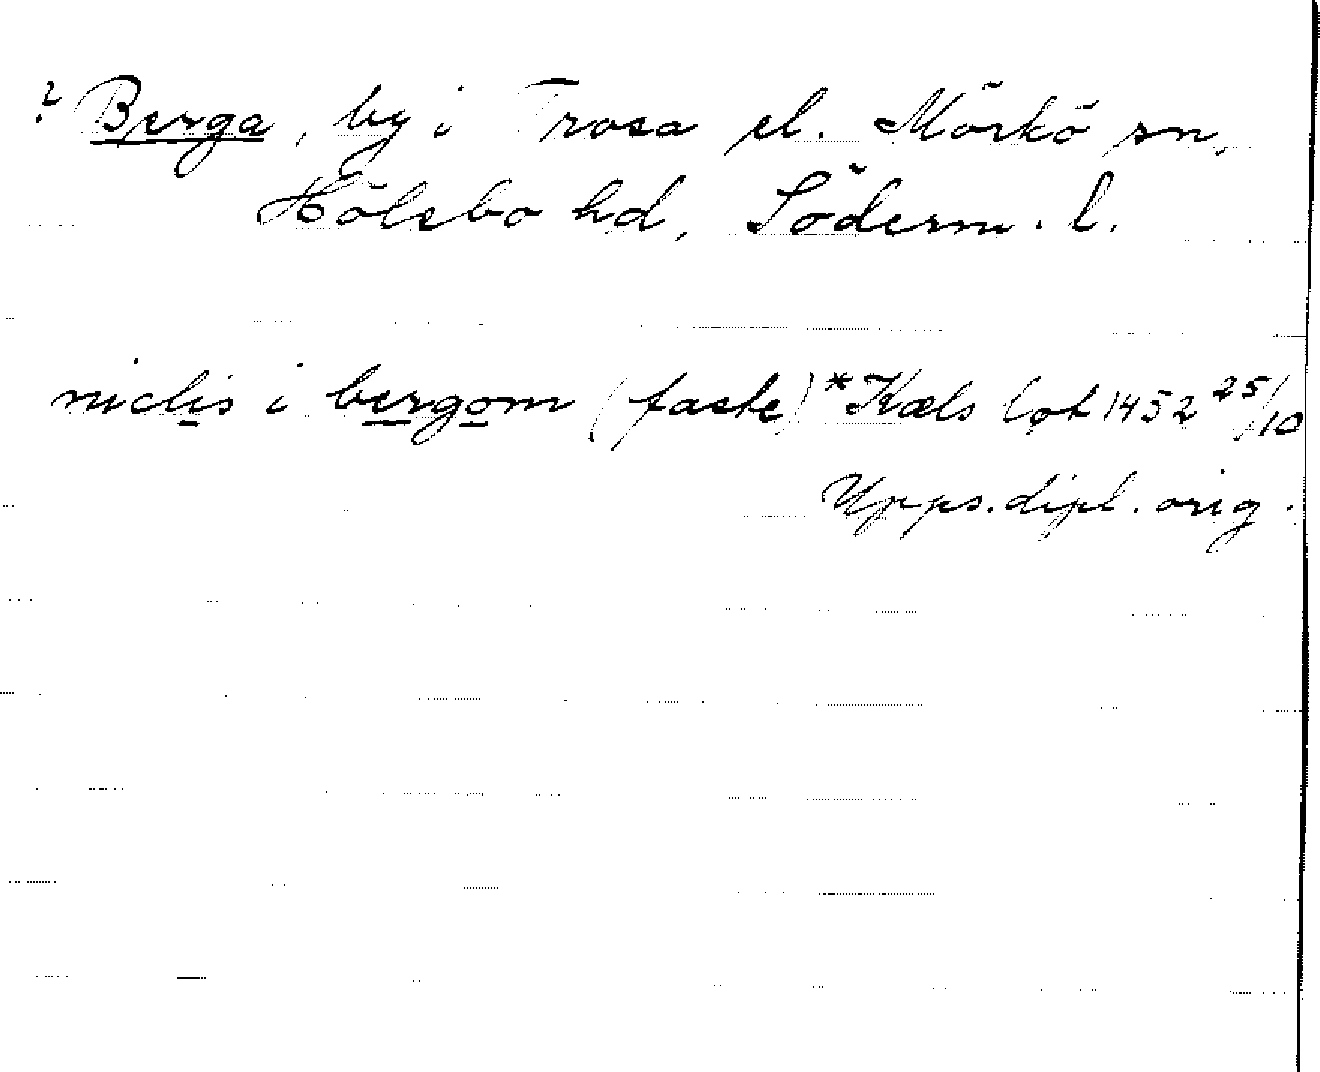 ? Berga, by i Trosa el. Mörkö sn,
Hölebo hd, Söderm. l.
niclis i bergom (faste) *Kæls løt 1452 25/10
Upps. dipl. orig.